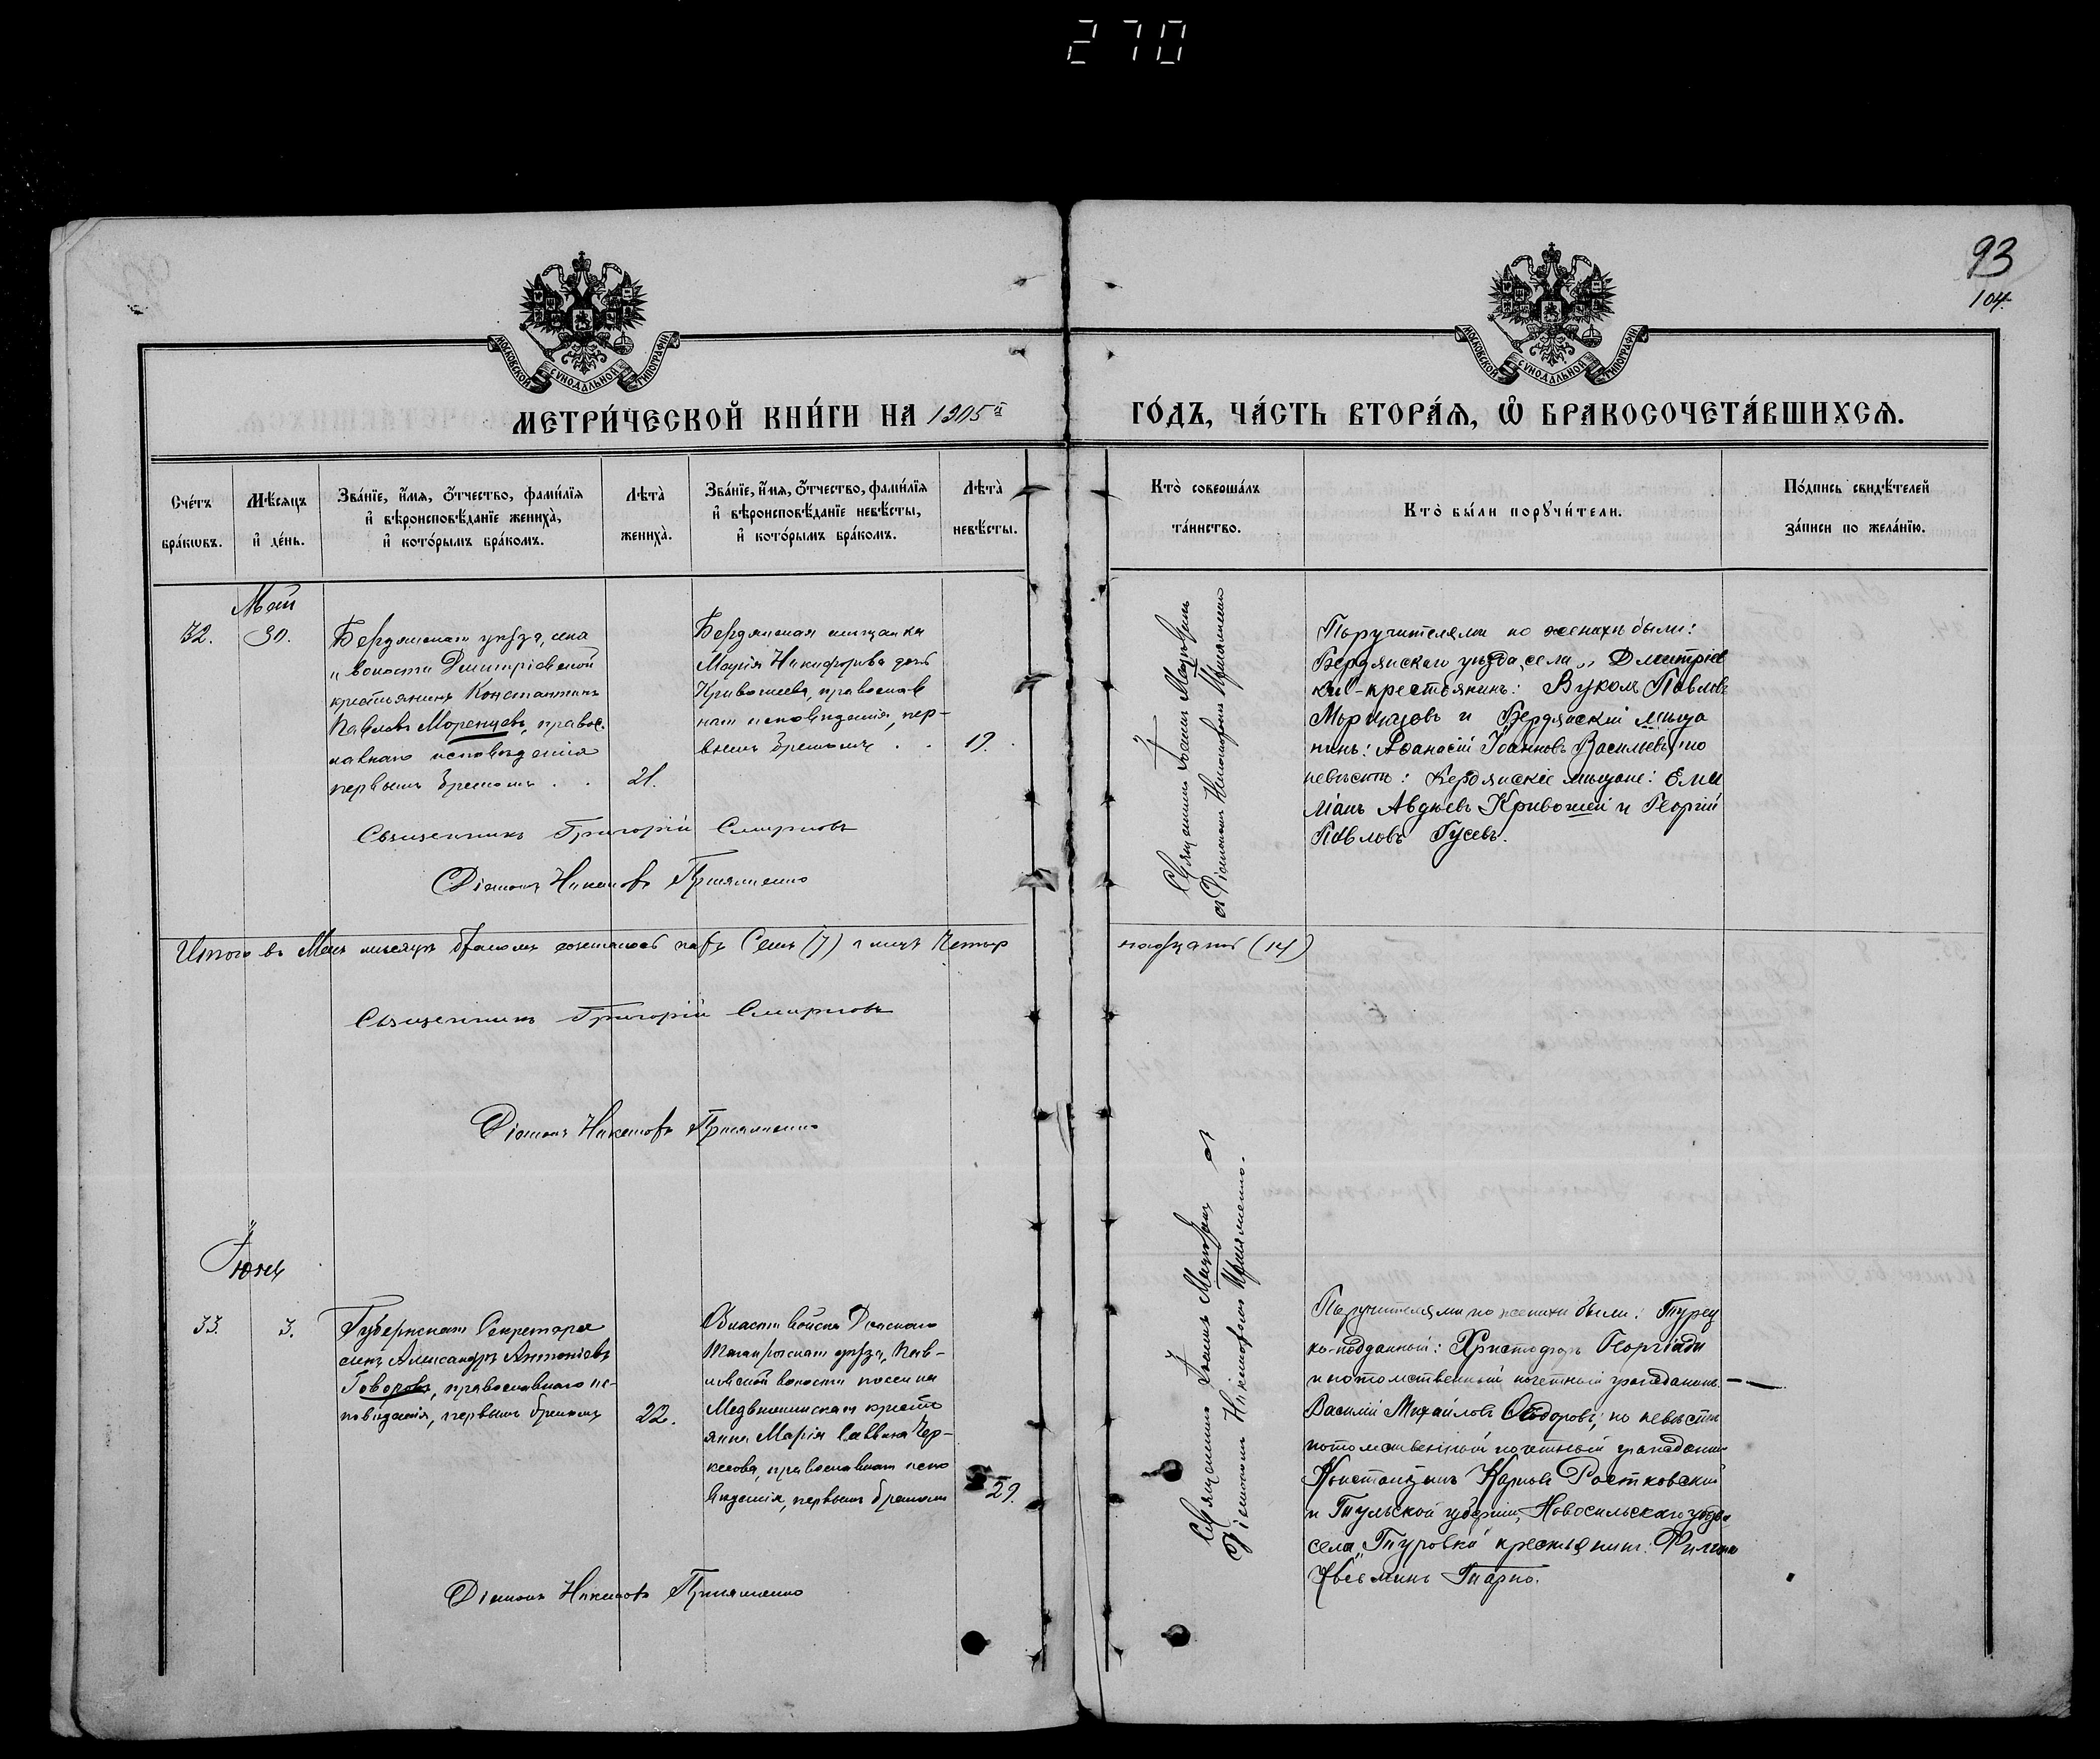 270
93
104
МОСКОВСКОЙ СѴНОДАЛЬНОЙ ТИПОГРАФІИ
МОСКОВСКОЙ СѴНОДАЛЬНОЙ ТИПОГРАФІИ
МЕТРИ́ЧЕСКОЙ КНИ́ГИ НА 1905й
ГО́ДЪ, ЧА́СТЬ ВТОРА́Ѧ, Ѡ҆ БРАКОСОЧЕТА́ВШИХСѦ.
Сче́тъ
бра́кѡвъ.
Мѣ́сѧцъ
и҆ де́нь.
Зва́нїе, и҆́мѧ, ѻ҆́тчество, фамѝлїѧ
и҆ вѣроисповѣ́данїе жениха̀,
и҆ кото́рымъ бра́комъ.
Лѣта̀
жениха̀.
Зва́нїе, и҆́мѧ, ѻ҆́тчество, фамѝлїѧ
и҆ вѣроисповѣ́данїе невѣ́сты,
и҆ кото́рымъ бра́комъ.
Лѣта̀
невѣ́сты.
Кто̀ соверша́лъ
та́инство.
Кто̀ бы́ли порꙋчи́тели.
По́дпись свидѣ́телей
за́писи по жела́нїю.
Май
32.
30.
Бердянскаго уѣзда, села
„ волости Дмитріевской
крестьянинъ Константинъ
Павловъ Моренцовъ, правос-
лавнаго исповѣданія
первымъ бракомъ . .
21.
Бердянская мѣщанка
Марія Никифорова дочь
Кривошеева, православ
наго исповѣданія, пер-
вымъ бракомъ . .
19.
Священникъ Іоаннъ
съ Діакономъ Никифоромъ
Поручителями по женихѣ были:
Бердянскаго уѣзда, села „ Дмитріев
ки - крестьянинъ: Вуколъ Павловъ
Моренцовъ и Бердянскій мѣща
нинъ: Аѳанасій Іоанновъ Васильевъ, по
невѣстѣ: Бердянскіе мѣщане: Еми
ліанъ Авдѣевъ Кривошей и Георгій
Павловъ Гусевъ.
Священникъ Григорій Смирновъ
Діаконъ Никифоръ
Итого въ Маѣ мѣсяцѣ бракомъ сочеталось паръ Семь (7) а лицъ Четыр
надцать (14)
Священникъ Григорій Смирновъ
Діаконъ Никифоръ
Іюнь
33.
3.
Губернскаго Секретаря
сынъ Александръ Антоніевъ
Говоровъ, православнаго ис-
повѣданія, первымъ бракомъ
22.
Области войска Донского
Таганрогскаго округа,
волости поселка
крестья
янка Марія Саввина Чер-
кесова, православнаго испо
вѣданія, первымъ бракомъ
29.
Священникъ Іоаннъ съ
Діакономъ Никифоромъ
Поручителями по женихѣ были: Турец
ко-подданный: Христофоръ Георгіади
и потомственный почетный гражданинъ
Василій Михайловъ; по невѣстѣ
потомственный почетный гражданинъ
Константинъ Карповъ Ростковскій
и Тульской губерніи, Новосильскаго уѣзда
села „Туровки крестьянинъ:
Діаконъ Никифоръ